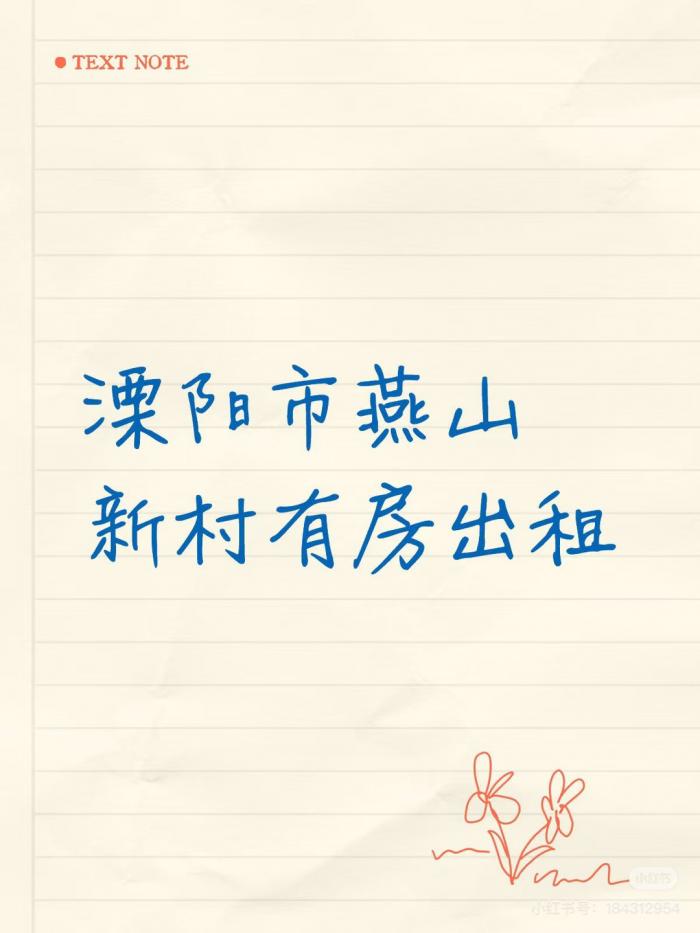 TEXT NOTE
溧阳市燕山
新村有房出租
小红书
小红书号：184312954